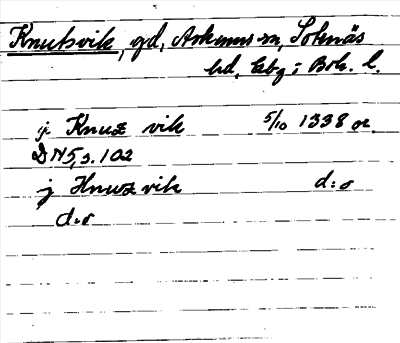 Knutsvik, gd, Askums sn, Sotenäs
hd, Gbg: Boh. l.
j Knuz vik 5/10 1338 or.
DN 5, s. 102
j Hnuz vik d:o
d:o